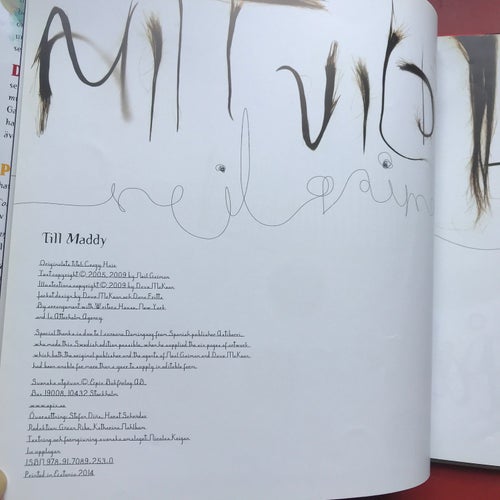 MITT VILD
neil gaiman
Till Maddy
Originalets titel: Crazy Hair
Text copyright © 2005, 2009 by Neil Gaiman
Illustrations copyright © 2009 by Dave McKean
Jacket design by Dave McKean och Dana Fritts
By arrangement with Writers House, New York
and Ia Atterholm Agency
Special thanks is due to Lorenzo Dominguez from Spanish publisher Astiberri
who made this Swedish edition possible, when he supplied the six pages of artwork
which both the original publisher and the agents of Neil Gaiman and Dave McKean
had been unable for more than a year to supply in editable form.
Svenska utgåvan © Epix Bokförlag AB
Box 19008, 104 32 Stockholm
www.epix.se
Översättning: Stefan Diös, Horst Schröder
Redaktion: Göran Ribe, Katharina Dahlbom
Textning och formgivning svenska omslaget: Nicolas Krizan
1a upplagan
ISBN 978-91-7089-253-0
Printed in Estonia 2014